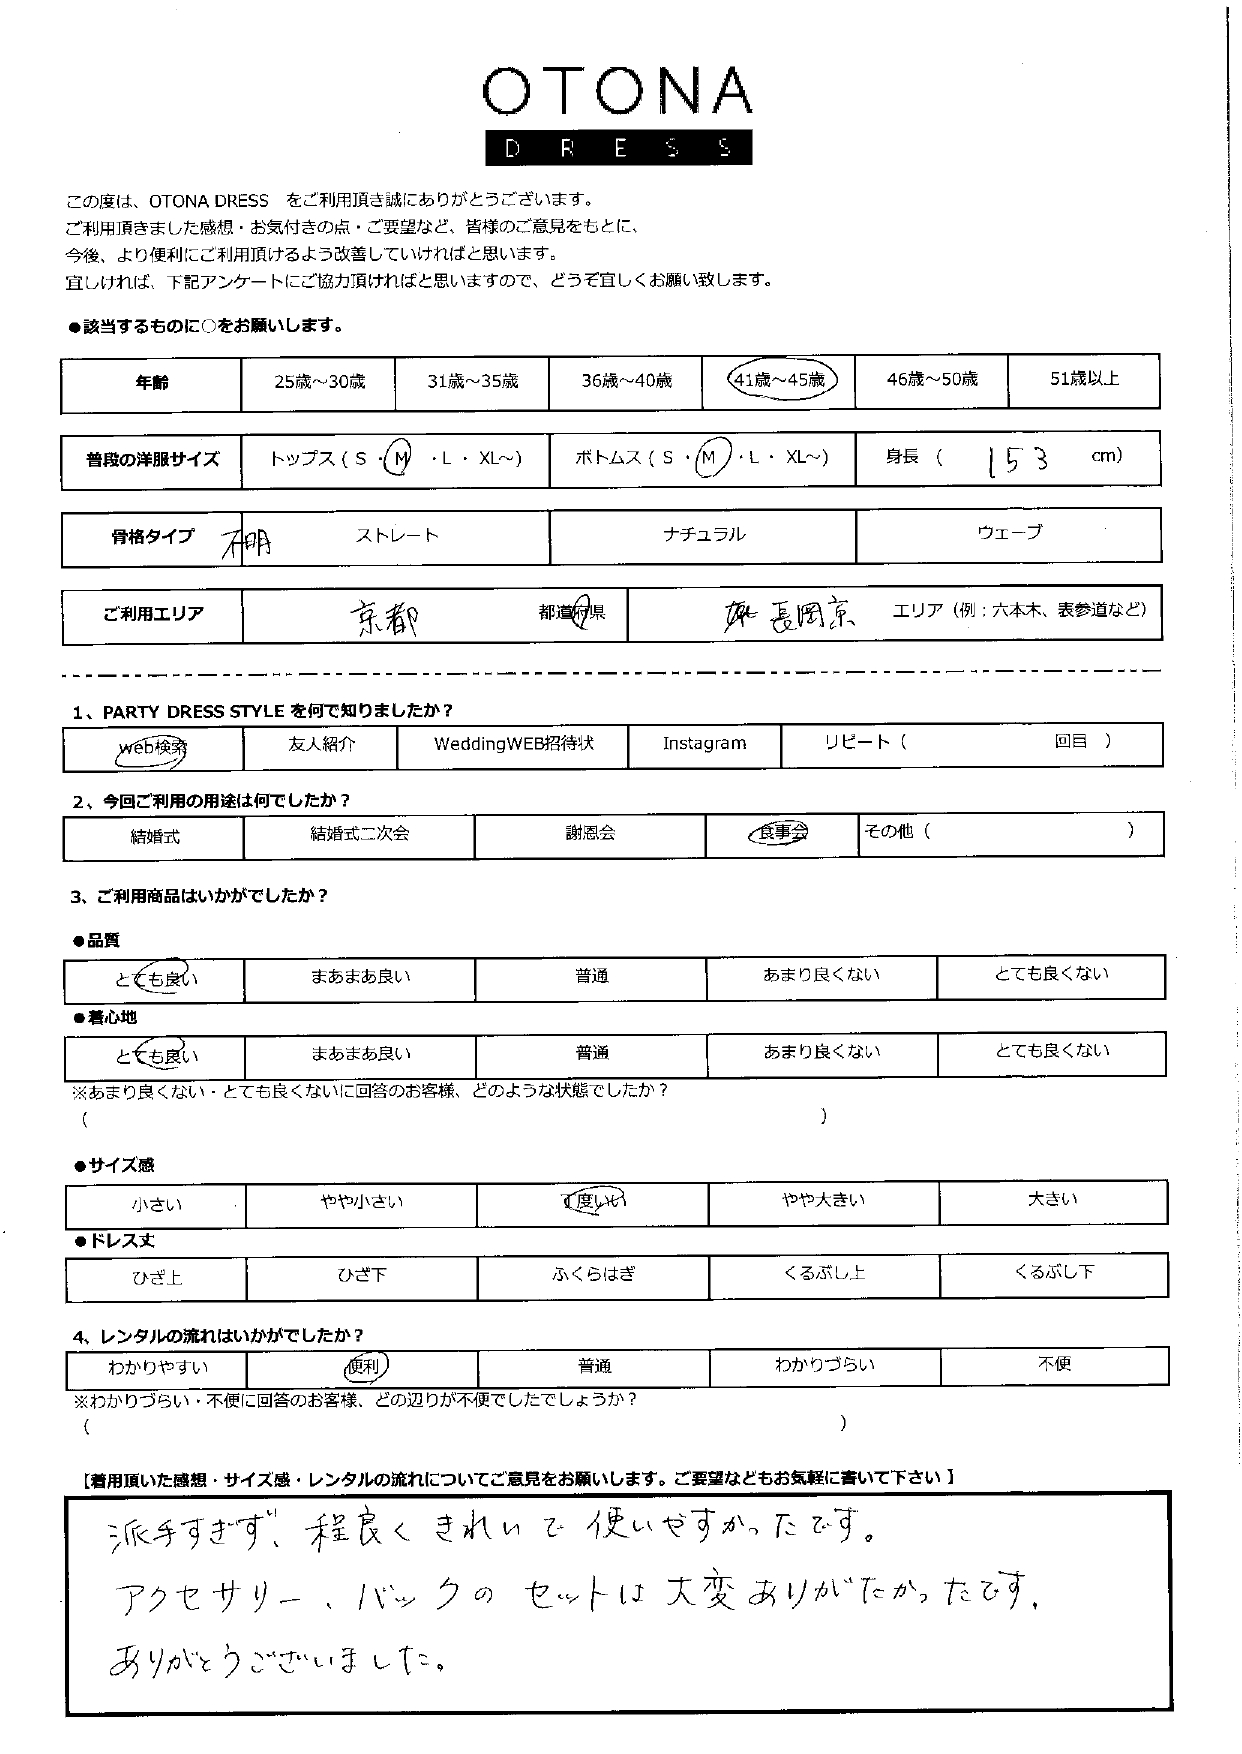 OTONA
DRESS
この度は、OTONA DRESS　をご利用頂き誠にありがとうございます。
ご利用頂きました感想・お気付きの点・ご要望など、皆様のご意見をもとに、
今後、より便利にご利用頂けるよう改善していければと思います。
宜しければ、下記アンケートにご協力頂ければと思いますので、どうぞ宜しくお願い致します。
●該当するものに○をお願いします。
年齢 25歳～30歳 31歳～35歳 36歳～40歳 41歳～45歳 46歳～50歳 51歳以上
普段の洋服サイズ トップス（ S ・M ・L ・ XL～） ボトムス（ S ・M ・L ・ XL～） 身長 （ 153 cm）
骨格タイプ 不明 ストレート ナチュラル ウェーブ
ご利用エリア 京都 都道府県 長岡京 エリア（例：六本木、表参道など）
1、PARTY DRESS STYLE を何で知りましたか？
web検索 友人紹介 WeddingWEB招待状 Instagram リピート（ 回目 ）
2、今回ご利用の用途は何でしたか？
結婚式 結婚式二次会 謝恩会 食事会 その他（ ）
3、ご利用商品はいかがでしたか？
●品質
とても良い まあまあ良い 普通 あまり良くない とても良くない
●着心地
とても良い まあまあ良い 普通 あまり良くない とても良くない
※あまり良くない・とても良くないに回答のお客様、どのような状態でしたか？
（ ）
●サイズ感
小さい やや小さい 丁度いい やや大きい 大きい
●ドレス丈
ひざ上 ひざ下 ふくらはぎ くるぶし上 くるぶし下
4、レンタルの流れはいかがでしたか？
わかりやすい 便利 普通 わかりづらい 不便
※わかりづらい・不便に回答のお客様、どの辺りが不便でしたでしょうか？
（ ）
【着用頂いた感想・サイズ感・レンタルの流れについてご意見をお願いします。ご要望などもお気軽に書いて下さい】
派手すぎず、程良くきれいで使いやすかったです。
アクセサリー、バックのセットは大変ありがたかったです.
ありがとうございました。